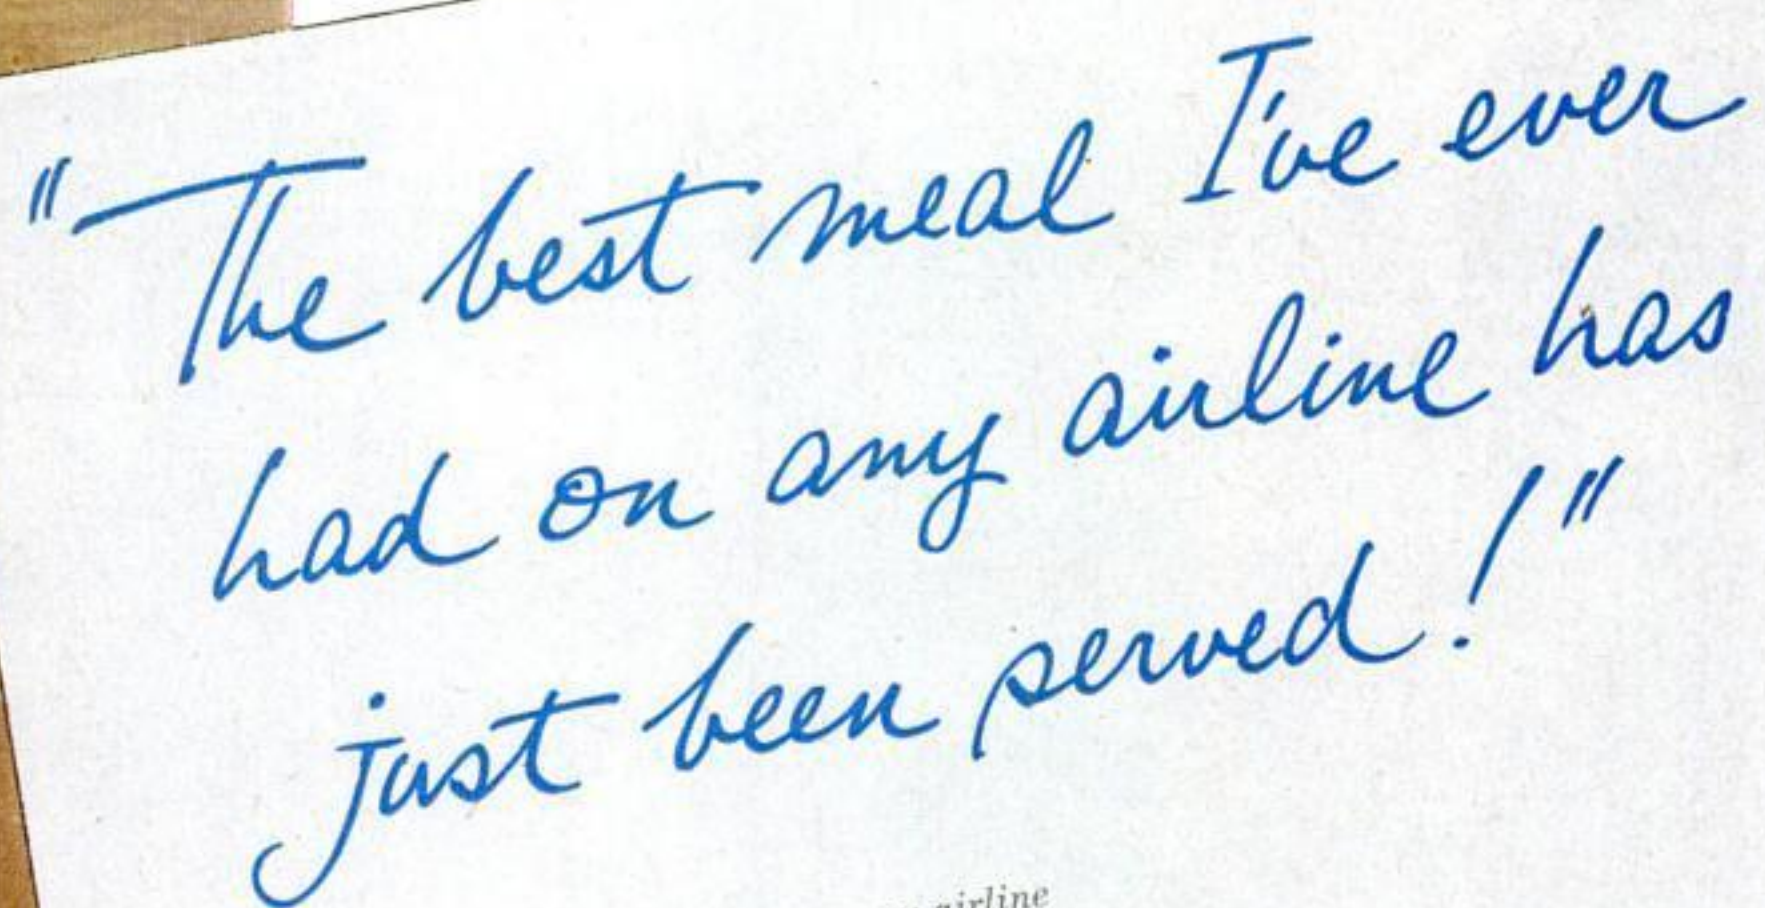 "The best meal I've ever
had on any airline has
just been served!"
airline